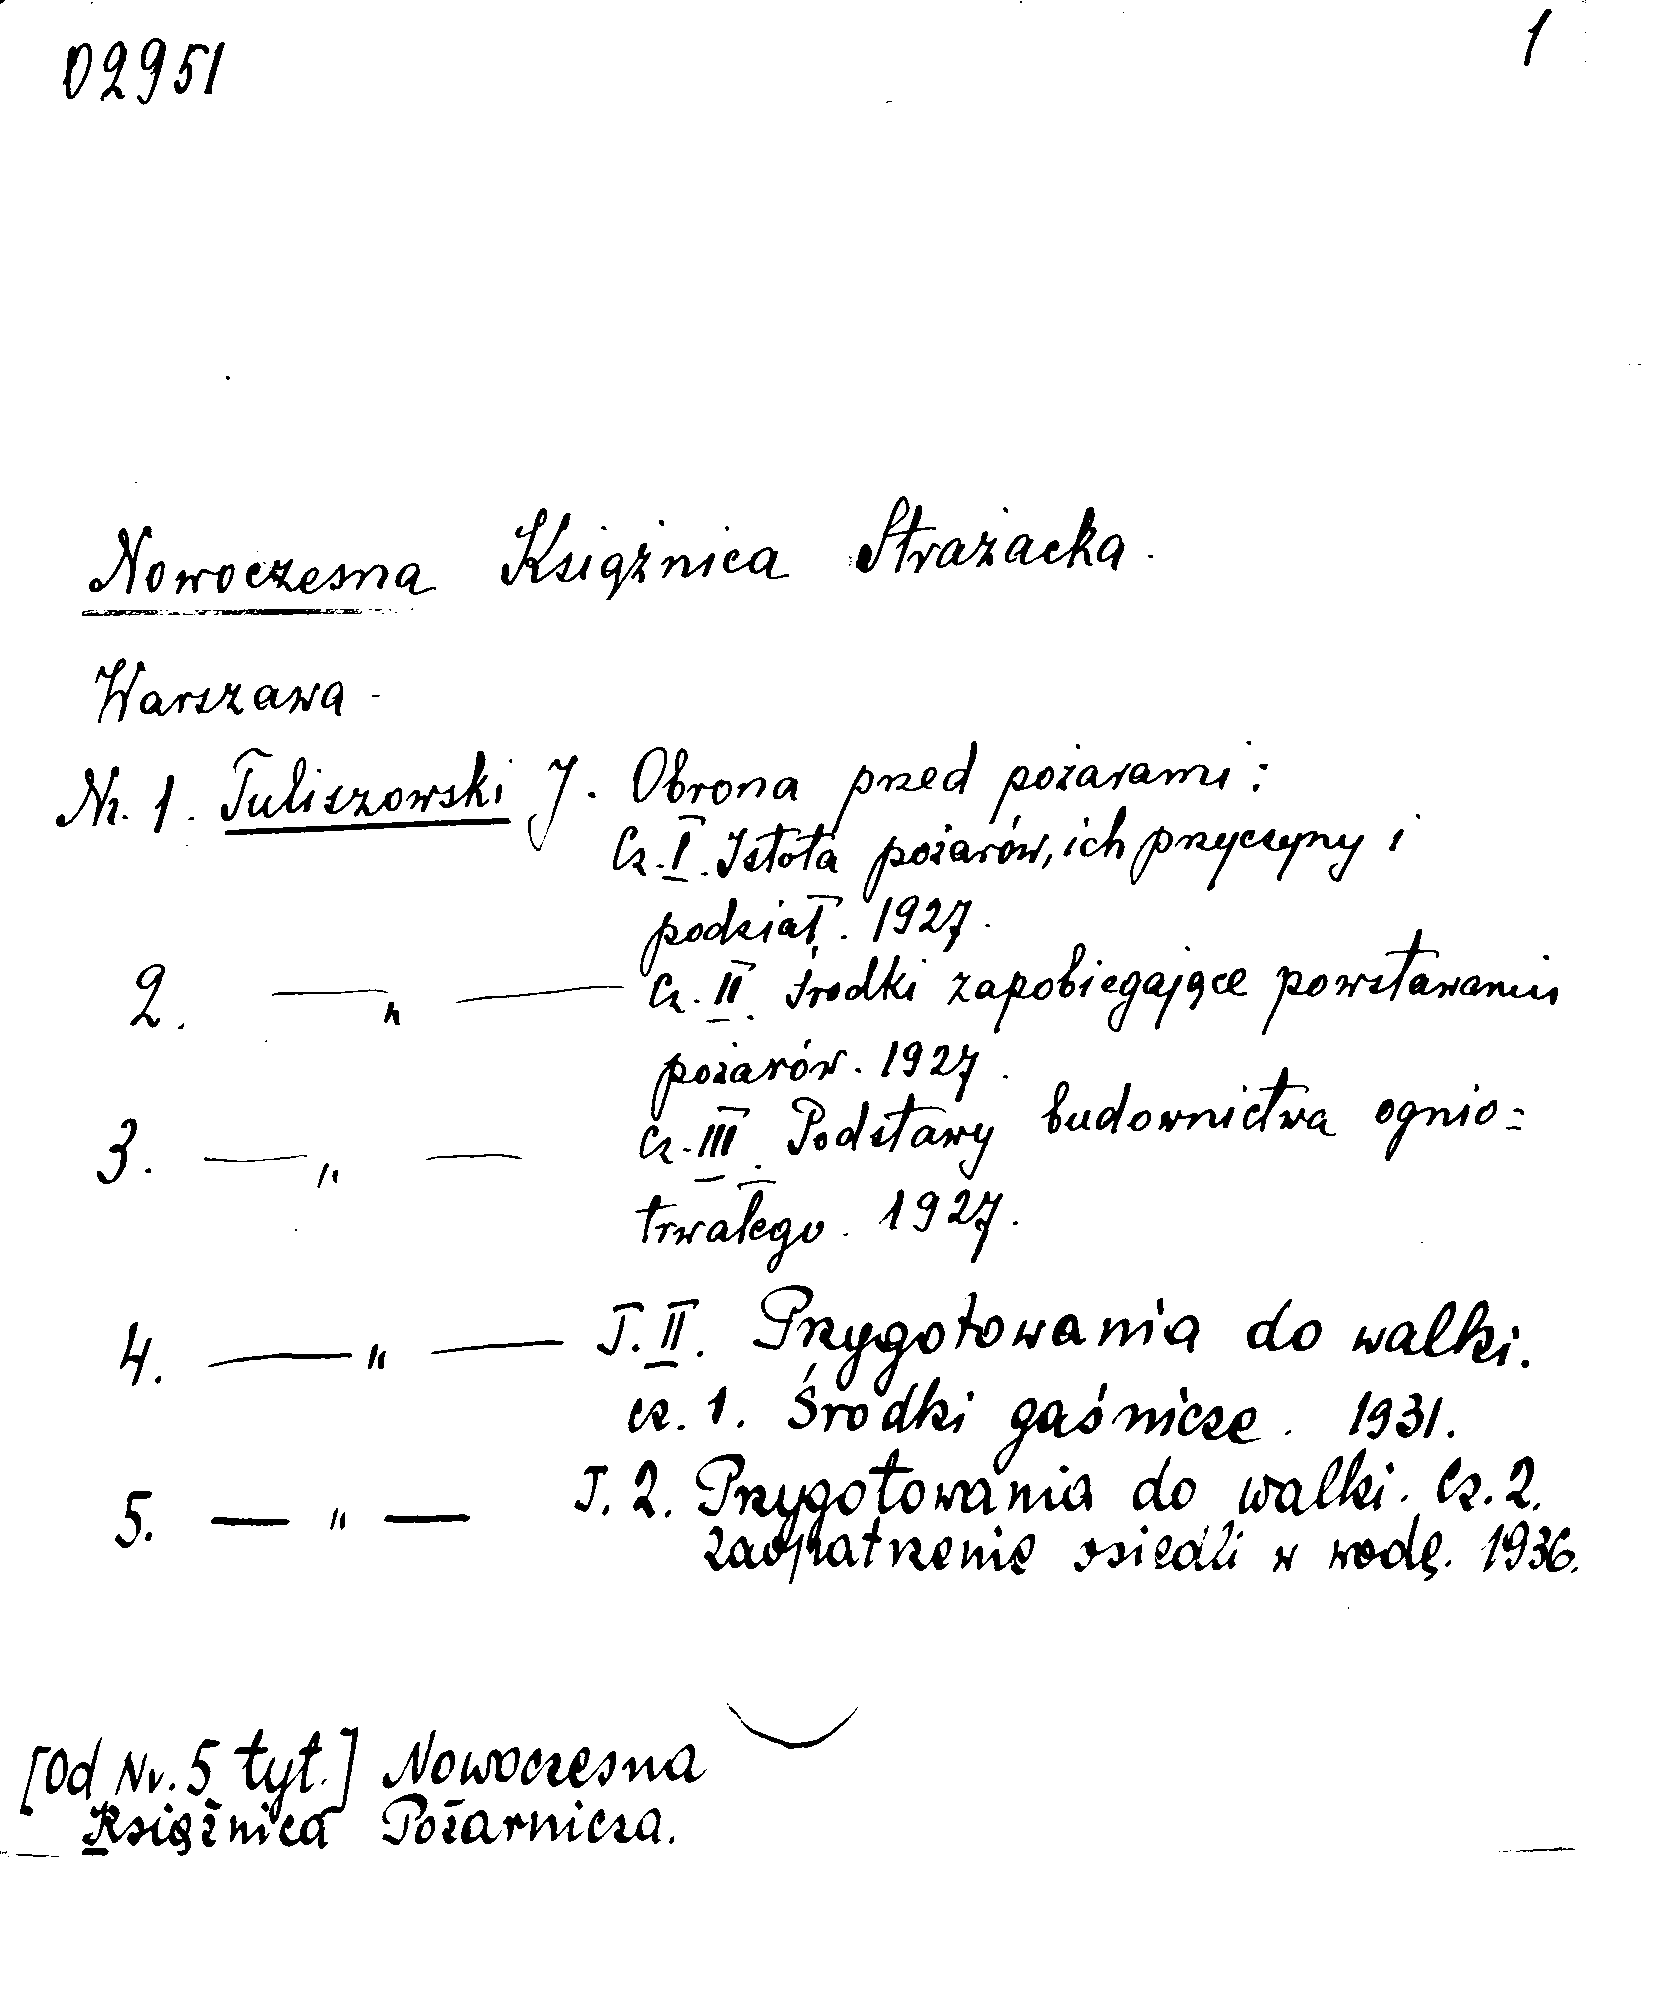 02951
1
Nowoczesna Książnica Strażacka.
Warszawa -
Nr. 1. Tuliszowski J. Obrona przed pożarami:
Cz. I. Istota pożarów, ich przyczyny i
podział. 1927.
2. —„— Cz. II. Środki zapobiegające powstawaniu
pożarów. 1927.
3. —„— Cz. III. Podstawy budownictwa ognio=
trwałego. 1927.
4. —„— T. II. Przygotowania do walki.
cz. 1. Środki gaśnicze. 1931.
5. —„— T. 2. Przygotowania do walki. Cz. 2.
zaopatrzenie osiedli w wodę. 1936.
[Od Nr. 5 tyt.] Nowoczesna
Książnica Pożarnicza.